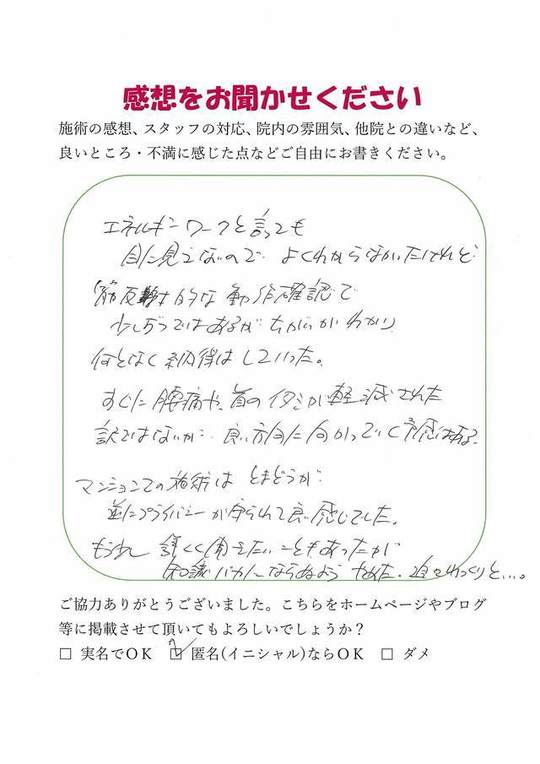 感想をお聞かせください
施術の感想、スタッフの対応、院内の雰囲気、他院との違いなど、
良いところ・不満に感じた点などご自由にお書きください。
エネルギーワークと言っても
目に見えないので よくわからなかったけれど
筋反射的な動作確認で
少しずつではあるが ちがいがわかり
何となく納得はしていった。
すぐに腰痛や、首のイタミが軽減された
訳ではないが… 良い方向に向かっていく予感はある。
マンションでの施術は とまどうが
逆にプライバシーが守られて良い感じでした。
もう少し 詳しく聞きたいこともあったが
知識バカにならぬよう やめた。
ご協力ありがとうございました。こちらをホームページやブログ
等に掲載させて頂いてもよろしいでしょうか？
□ 実名でＯＫ ☑ 匿名(イニシャル)ならＯＫ □ ダメ